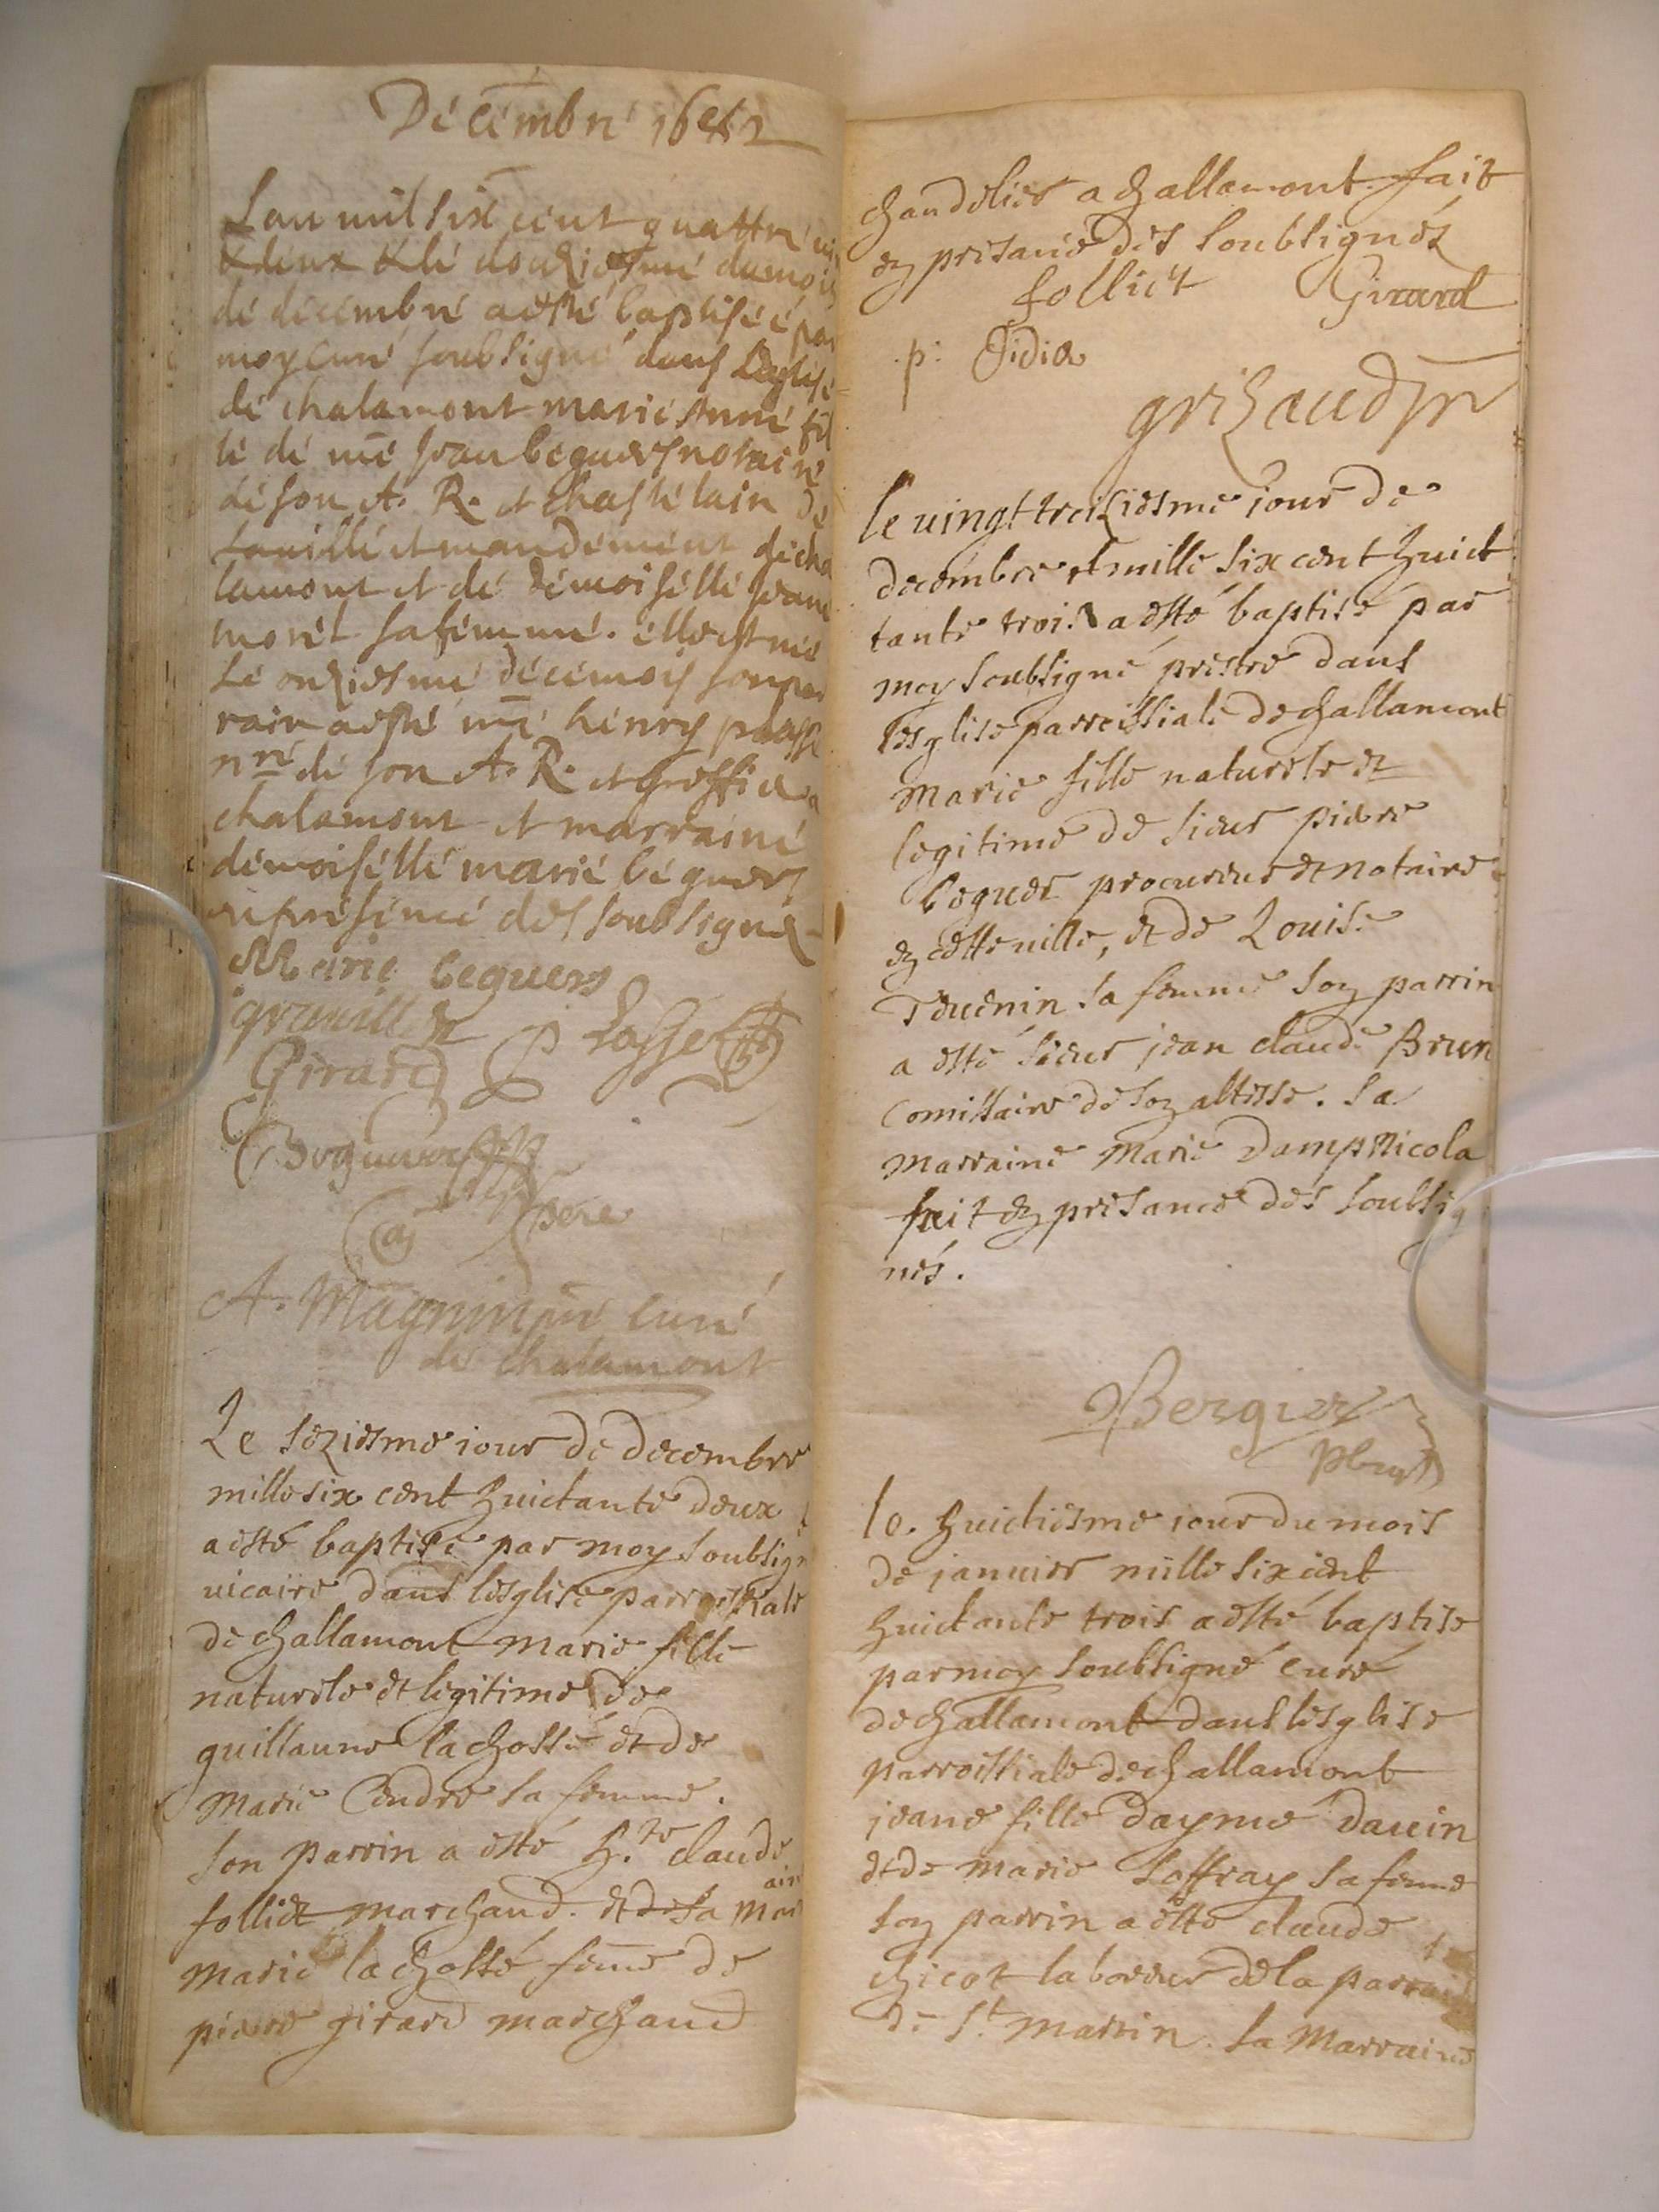 Décémbré 1682
Lan mil six cent quattré
& deux & lé douziesmé du mois
dé décémbré a esté baptiséé par
moy curé soubsigné dans Leglisé
dé chalamont marié Anné fil
lé dé mé Jean béguers notairé
dé son A. R. et chastélain dé
la villé et mandémént dé cha
lamont et dé démoisélle Jeane
morél sa fémmé. éllé est née
Lé onziesmé dé cé mois son par
rain a esté mé hénry
nré dé son A. R. et greffiér a
chalamont et marrainé
démoiséllé marié béguers
én présencé dés soubsignéz
Marie beguers
Girard P Lasse
Beguers
père
A. Magnin pré curé
dé chalamont
Le seziesme iour de decembre
mille six cent huictante deux
a esté baptisé par moy soubsign
vicaire dans lesglise parroissiale
de challamont Marie fille
naturele et legitime de
guillaume lachosse et de
Marie Cendre sa femme.
son parrin a esté h.te claude
folliet marchand. et de sa mar
aine
Marie lachosse feme de
pierre girard marchand
chandelier a challamont. fait
en presance des soubsignés
folliet Girard
p. Didia
grizaud pr
le vingt troiziesme iour de
decembre et mille six cent huict
tante trois a esté baptisé par
moy soubsigné prestre dans
lesglise parroissiale de challamont
Marie fille naturele et
legitime de sieur pierre
beguer procureur et notaire
en cette ville, et de Louise
Teuenin sa femme son parrin
a esté sieur jean claude Brun
Comissaire de son altesse. sa
Marraine Marie Damp Nicola
fait en presance des soubsig
nés.
Bergier
pbre
le huictiesme iour du mois
de januier mille six cent
huictante trois a esté baptise
par moy soubsigné curé
de challamont dans lesglise
parroissiale de challamont
jeane fille dayme dauin
et de Marie Loffray sa feme
son parrin a esté claude
chicot laboreur de la parroisse
de St martin. La Marraine